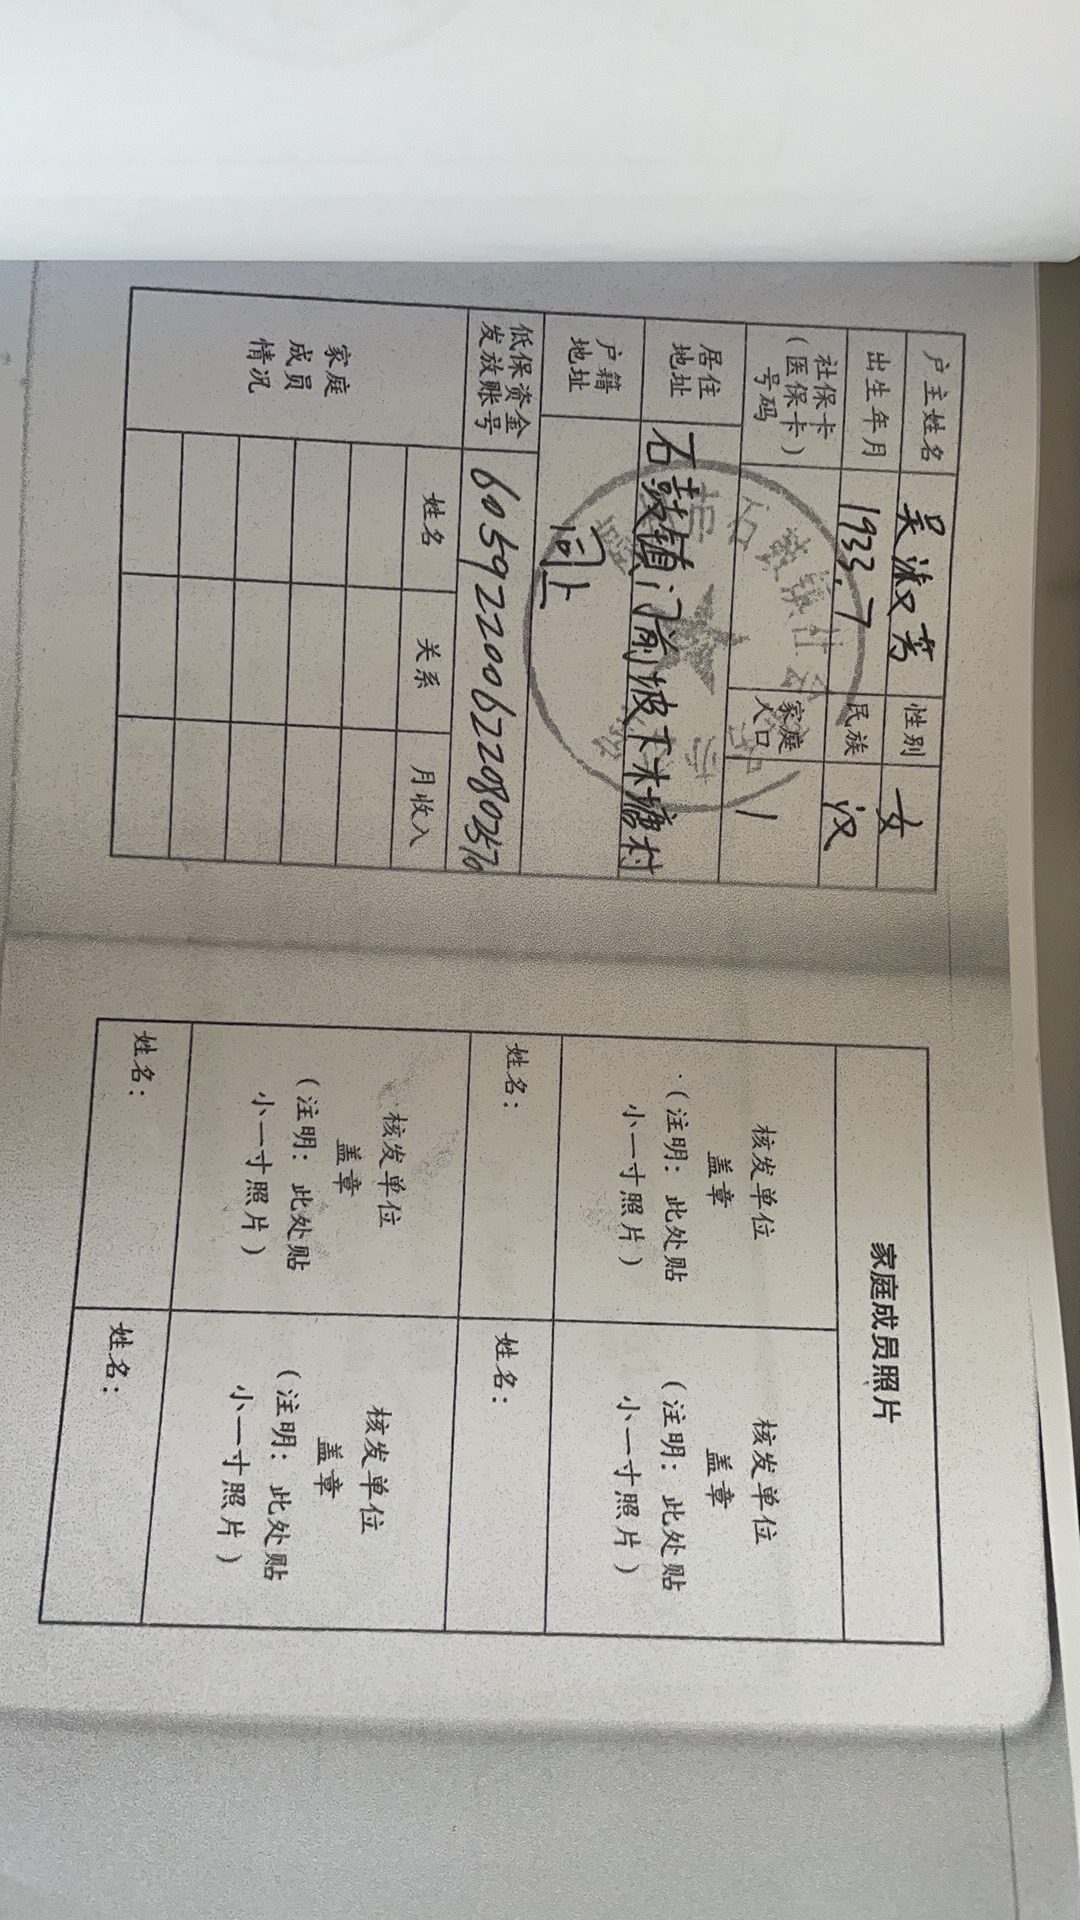 户主姓名 吴淑芳 性别 女
出生年月 1933.7 民族 汉
社保卡（医保卡）号码 家庭人口 1
居住地址 石鼓镇门前坡下木塘村
户籍地址 同上
低保资金发放账号 605922006222080357
家庭成员情况 姓名 关系 月收入
家庭成员照片
核发单位 核发单位
盖章 盖章
（注明：此处贴 （注明：此处贴
小一寸照片） 小一寸照片）
姓名： 姓名：
核发单位 核发单位
盖章 盖章
（注明：此处贴 （注明：此处贴
小一寸照片） 小一寸照片）
姓名： 姓名：